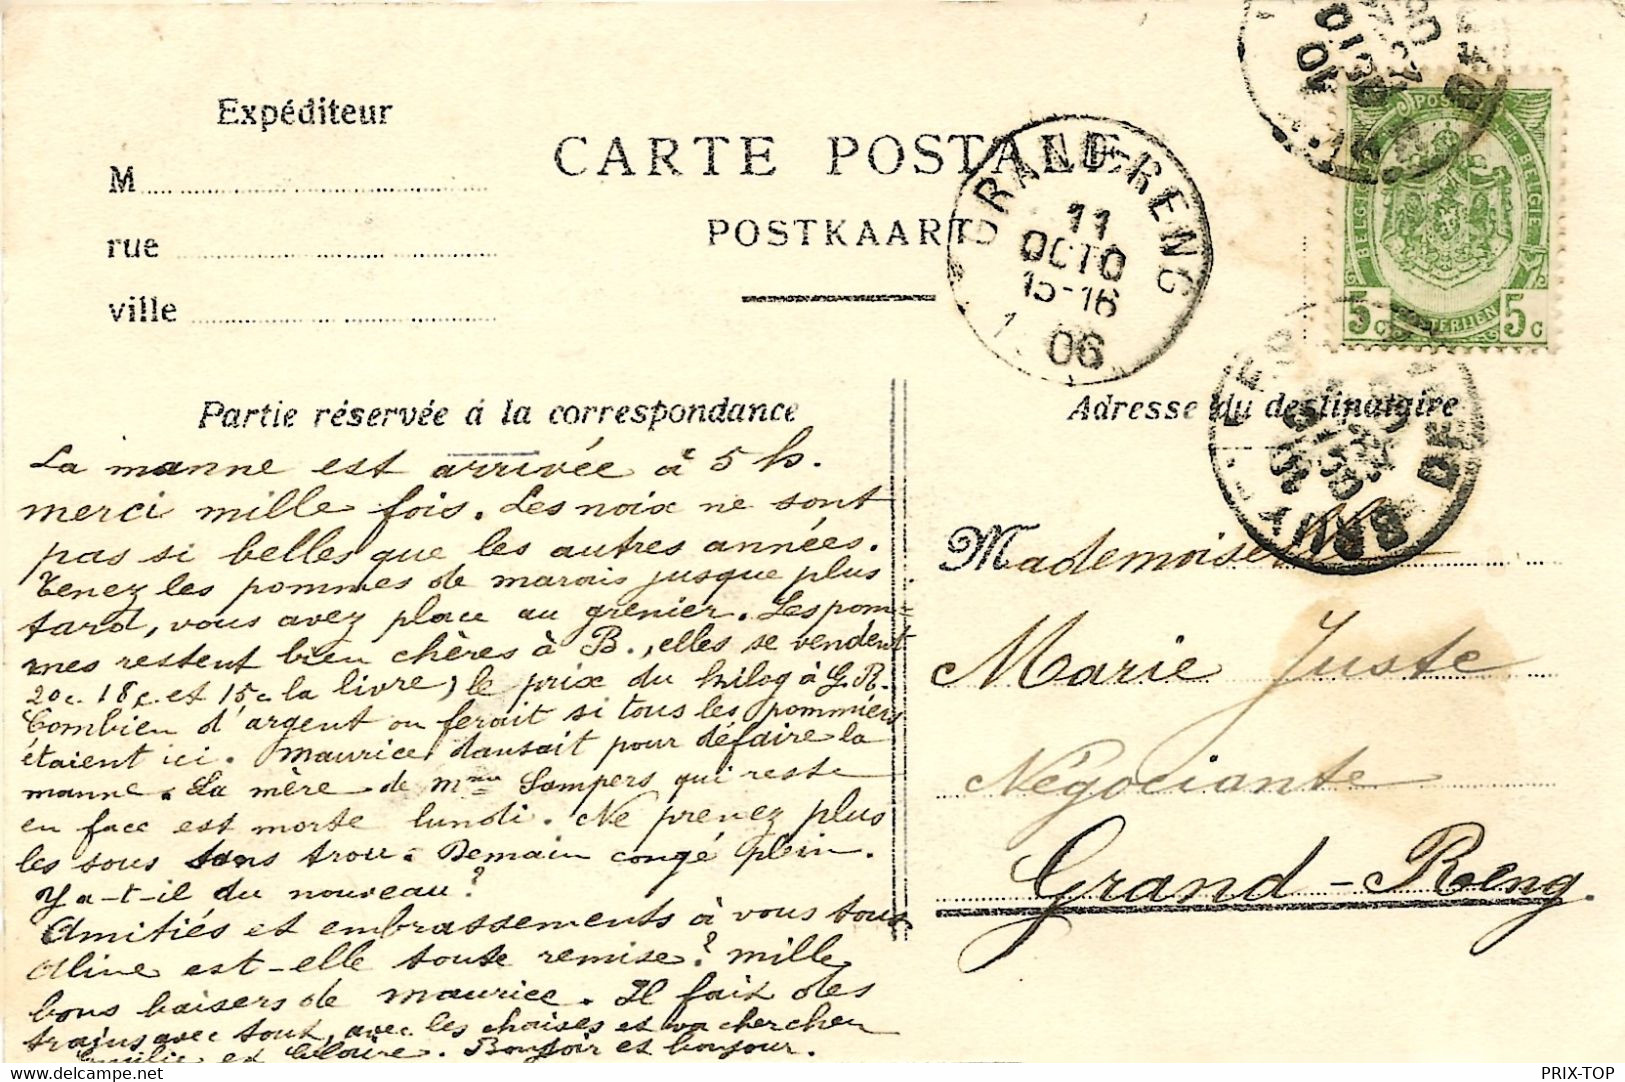 Expéditeur
M
rue
ville
CARTE POSTALE
POSTKAART
GRAND-RENG
11
OCTO
15-16
06
BELGIQUE POSTES BELGIE
5 c 5 c
Partie réservée á la correspondance
Adresse du destinataire
La manne est arrivée à 5 h.
merci mille fois. Les noix ne sont
pas si belles que les autres années.
Tenez les pommes de marais jusque plus
tard, vous avez place au grenier. Les pom-
mes restent bien chères à B., elles se vendent
20c. 18c. et 15c la livre, le prix du kilog à G.R.
Combien d'argent on ferait si tous les pommiers
étaient ici. Maurice dansait pour défaire la
manne. La mère de Mme Sampers qui reste
en face est morte lundi. Ne prenez plus
les sous sans trou. Demain congé plein.
Y a-t-il du nouveau?
Amitiés et embrassements à vous tous
Aline est-elle toute remise? mille
bons baisers de Maurice. Il fait des
trains avec tout, avec les chaises et va chercher
Emilie et Claire. Bonsoir et bonjour.
Mademoiselle
Marie Juste
Négociante
Grand-Reng.
delcampe.net
PRIX-TOP